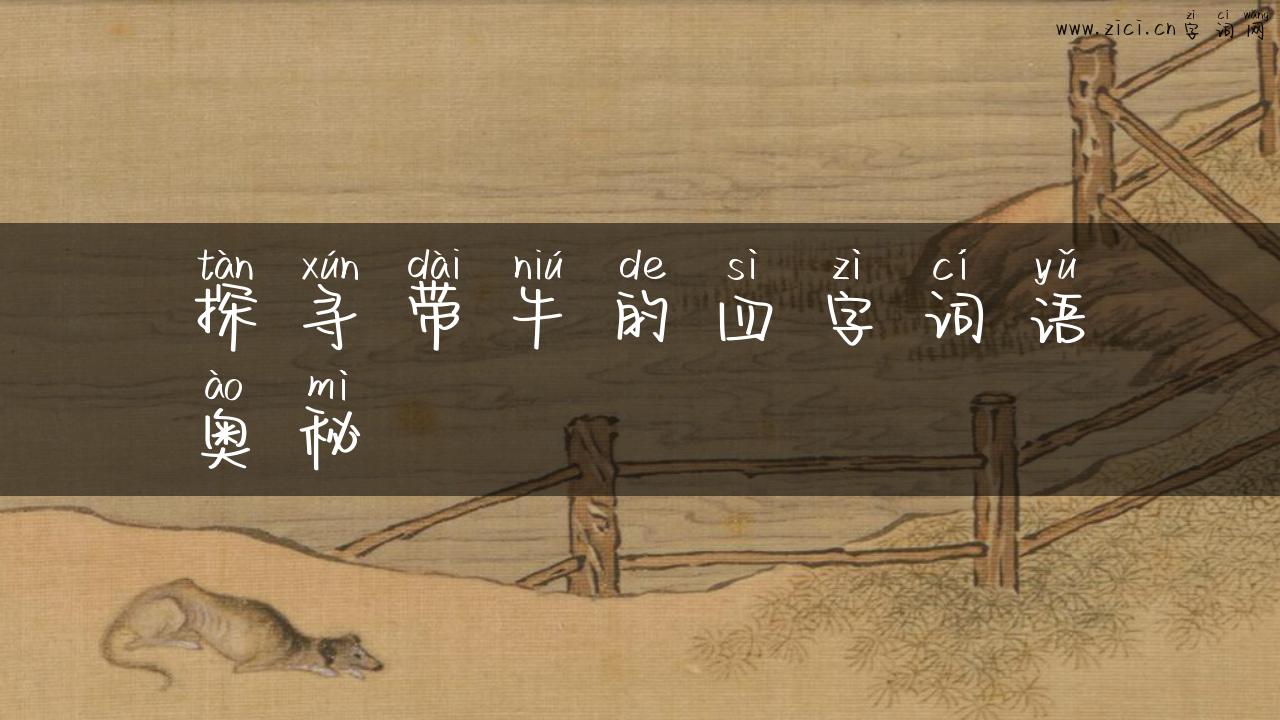 zì cí wǎng
www.zici.cn字词网
tàn xún dài niú de sì zì cí yǔ
探寻带牛的四字词语
ào mì
奥秘